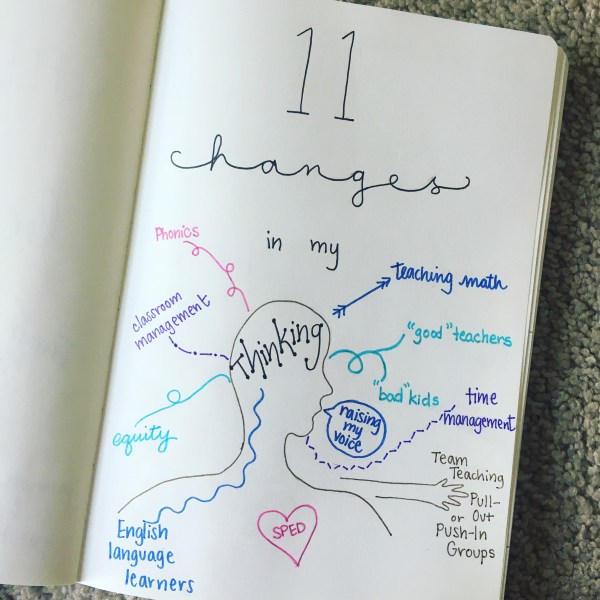 11
changes
in my
Thinking
Phonics
classroom
management
equity
English
language
learners
teaching math
"good" teachers
"bad" kids
time
management
raising
my
voice
Team
Teaching
Pull-
or Out
Push-In
Groups
SPED